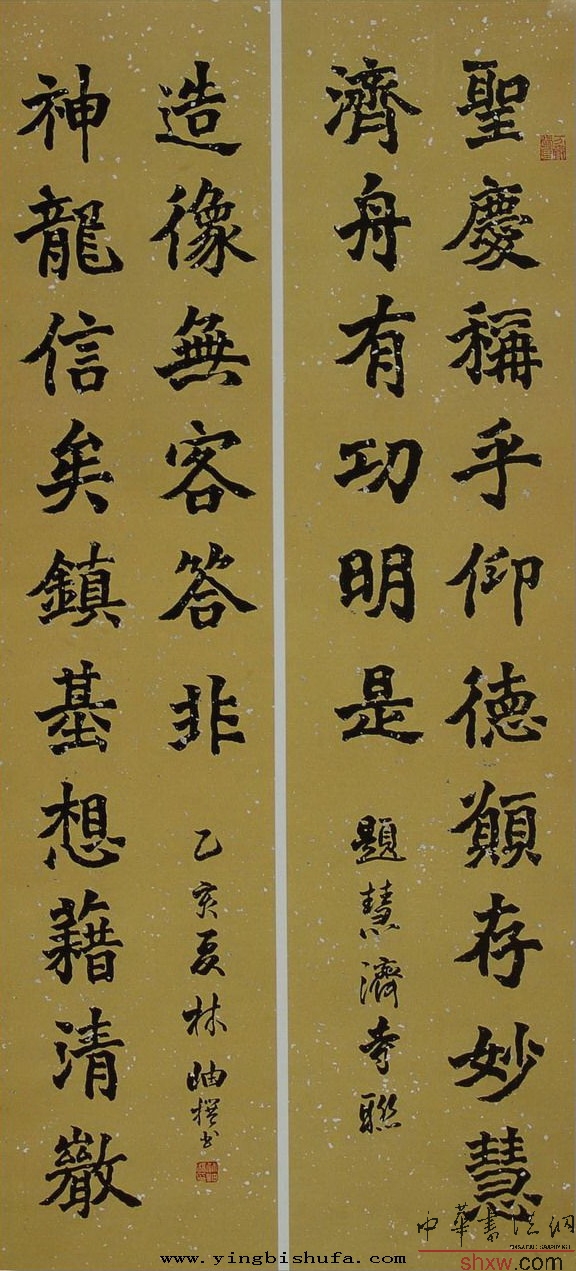 聖慶稱乎仰德願存妙慧
濟舟有功明是
題慧濟寺聯
神龍信矣鎮基想藉清
造像無客答非
乙亥夏林岫撰书
中華書法網
shxw.com
www.yingbishufa.com